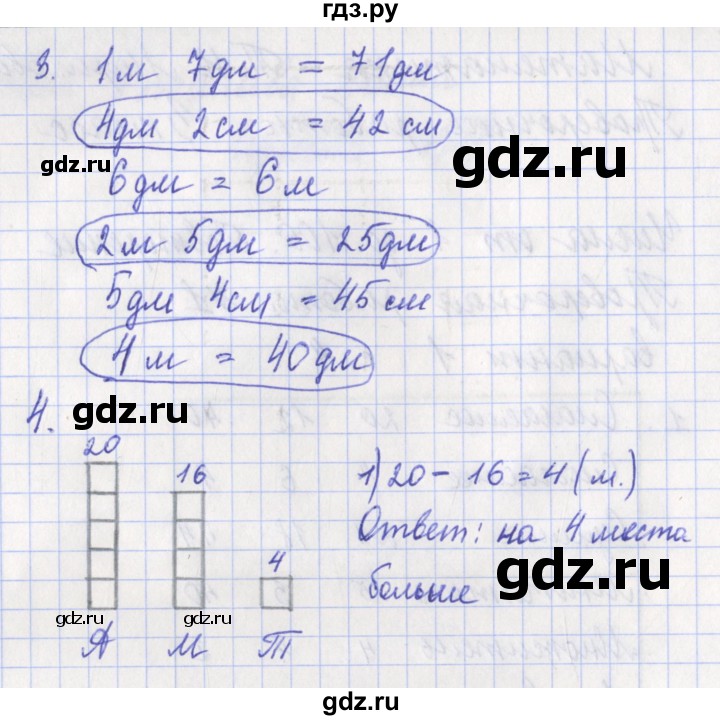 гдз.ру
3. 1м 7дм = 71дм
4дм 2см = 42см
gdz.ru
gdz.ru
6дм = 6м
2м 5дм = 25дм
gdz.ru
5дм 4см = 45см
4м = 40дм
gdz.ru
4.
gdz.ru
20
16
4
1) 20 - 16 = 4 (м.)
Ответ: на 4 места
больше
gdz.ru
gdz.ru
gdz.ru
А М Т
gdz.ru